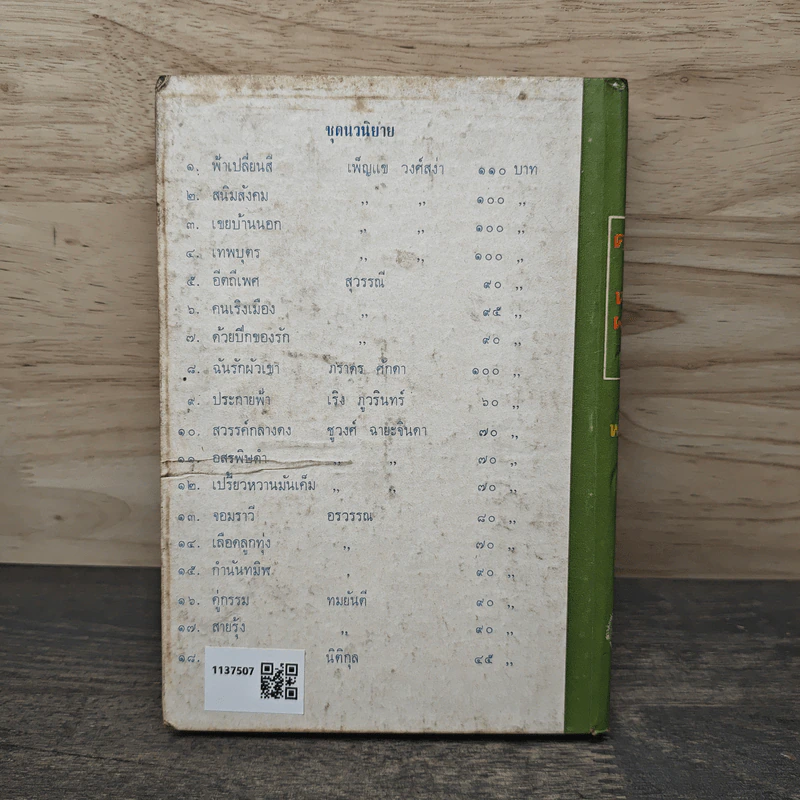 ชุดนวนิยาย
๑. ฟ้าเปลี่ยนสี เพ็ญแข วงศ์สง่า ๑๑๐ บาท
๒. สนิมสังคม ,, ,, ๑๐๐ ,,
๓. เขยบ้านนอก ,, ,, ๑๐๐ ,,
๔. เทพบุตร ,, ,, ๑๐๐ ,,
๕. อีตถีเพศ สุวรรณี ๙๐ ,,
๖. คนเริงเมือง ,, ๙๕ ,,
๗. ด้วยปีกของรัก ,, ๙๐ ,,
๘. ฉันรักผัวเขา ภราดร ศักดา ๑๐๐ ,,
๙. ประกายฟ้า เริง ภูวรินทร์ ๖๐ ,,
๑๐. สวรรค์กลางดง ชูวงศ์ ฉายะจินดา ๗๐ ,,
๑๑. อสรพิษดำ ,, ๗๐ ,,
๑๒. เปรี้ยวหวานมันเค็ม ,, ,, ๗๐ ,,
๑๓. จอมราวี อรวรรณ ๘๐ ,,
๑๔. เลือดลูกทุ่ง ,, ๗๐ ,,
๑๕. กำนันทมิฬ ,, ๙๐ ,,
๑๖. คู่กรรม ทมยันตี ๙๐ ,,
๑๗. สายรุ้ง ,, ๙๐ ,,
๑๘. นิติกุล ๔๕ ,,
1137507